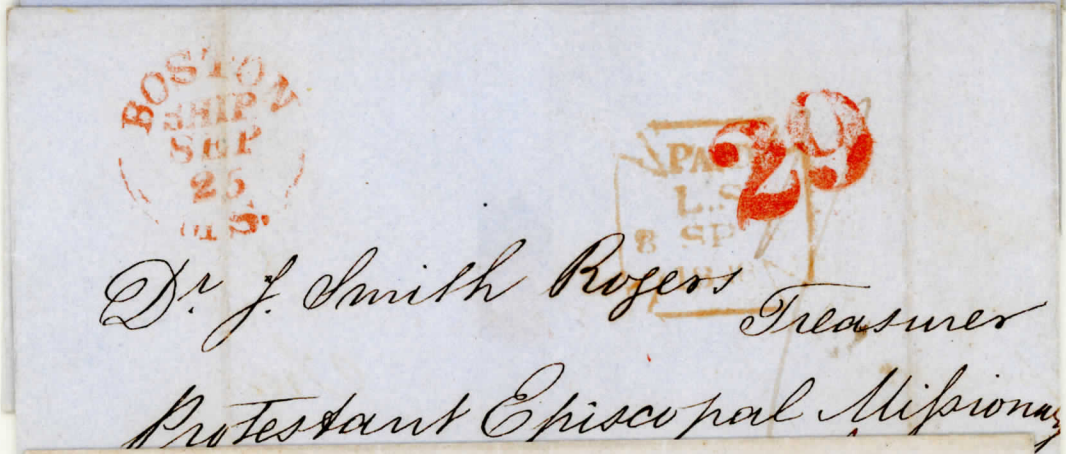 BOSTON
SHIP
SEP
25
MS.
29
PAID
L.S
8 SP
Dr. J. Smith Rogers
Treasurer
Protestant Episcopal Missionary